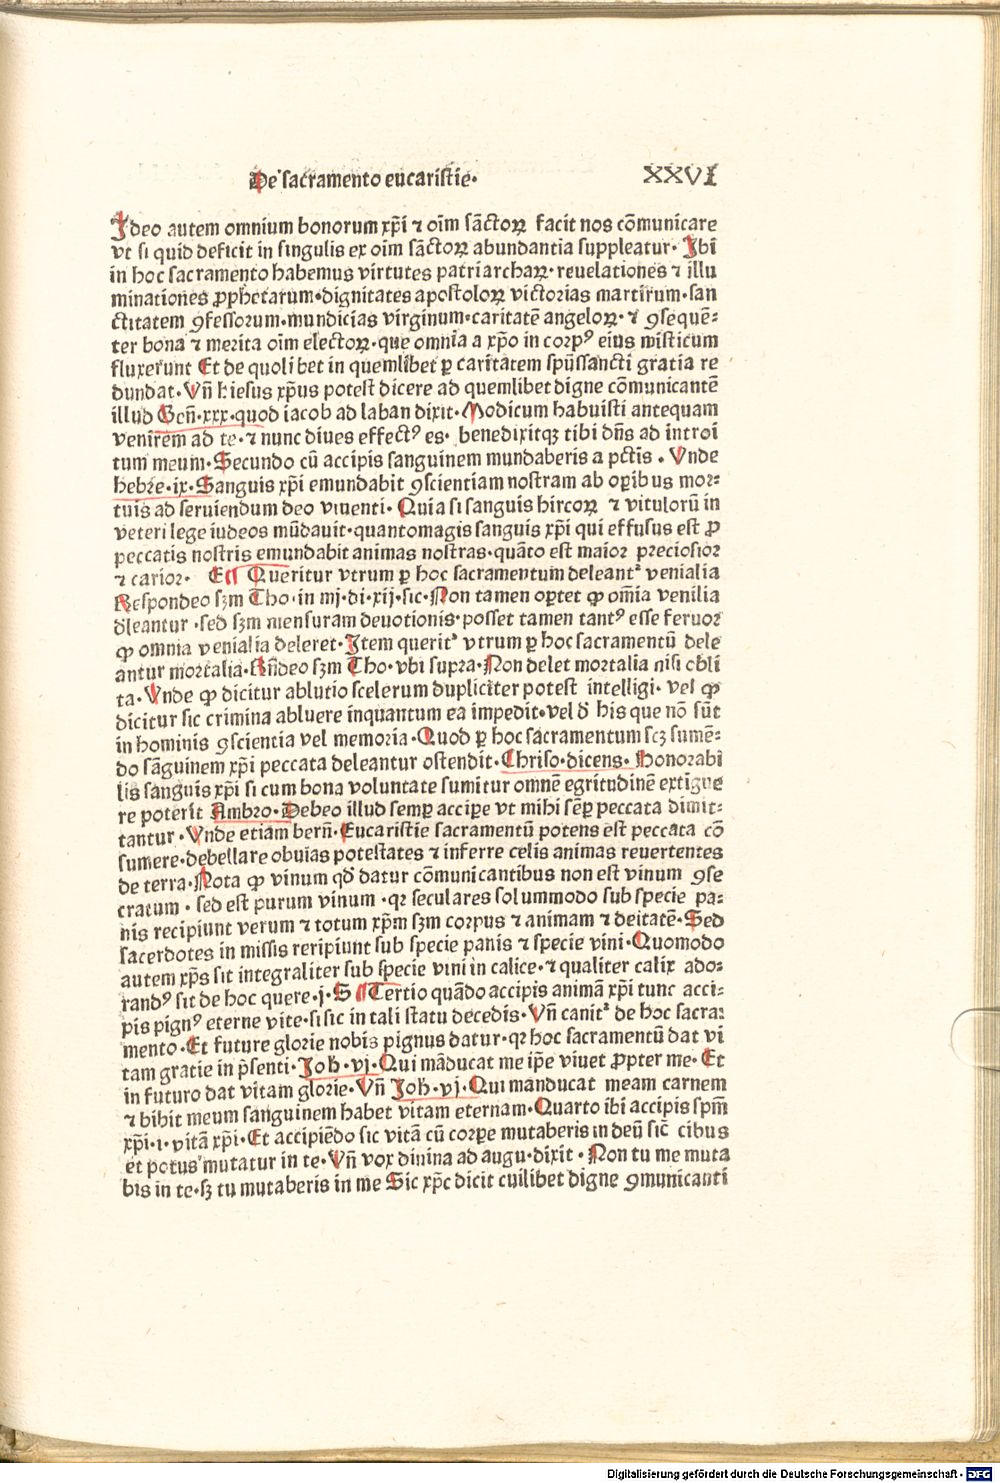 De sacramento eucaristie· XXVI
Ideo autem omnium bonorum xp̄i ⁊ oīm sāctoꝝ facit nos cōmunicare
vt si quid deficit in singulis ex oīm sāctoꝝ abundantia suppleatur· Ibi
in hoc sacramento habemus virtutes patriarchaꝝ· reuelationes ⁊ illu
minationes ꝓphetarum·dignitates apostoloꝝ victorias martirum·san
ctitatem ꝯfessorum·mundicias virginum·caritatē angeloꝝ· ⁊ ꝯsequē⸗
ter bona ⁊ merita oīm electoꝝ·que omnia a xp̄o in corpꝰ eius misticum
fluxerunt Et de quoli bet in quemlibet ꝑ caritatem sp̄ussancti gratia re
dundat·Vn̄ hiesus xp̄us potest dicere ad quemlibet digne cōmunicantē
illud Gen̄·xxx·quod iacob ad laban dixit·Modicum habuisti antequam
venirem ad te·⁊ nunc diues effectꝰ es· benedixitqꝫ tibi dn̄s ad introi
tum meum·Secundo cū accipis sanguinem mundaberis a pctis · Vnde
hebre·ix·Sanguis xp̄i emundabit ꝯscientiam nostram ab oꝑibus mor⸗
tuis ad seruiendum deo viuenti· Quia si sanguis hircoꝝ ⁊ vitulorū in
veteri lege iudeos mūdauit·quantomagis sanguis xp̄i qui effusus est ꝓ
peccatis nostris emundabit animas nostras·quāto est maior preciosior
⁊ carior· E¶ Queritur vtrum ꝑ hoc sacramentum deleantᷣ venialia
Respondeo sꝫm Tho·in iiij·di·xij·sic·Non tamen oꝑtet ꝙ om̄ia venilia
d̄leantur ·sed sꝫm mensuram deuotionis·posset tamen tantꝰ esse feruor
ꝙ omnia venialia deleret·Item queritᷣ vtrum ꝑ hoc sacramentū dele
antur mortalia·Rn̄deo sꝫm Tho·vbi supra·Non delet mortalia nisi obli
ta·Vnde ꝙ dicitur ablutio scelerum dupliciter potest intelligi· vel ꝙ
dicitur sic crimina abluere inquantum ea impedit·vel d̄ his que nō sūt
in hominis ꝯscientia vel memoria·Quod ꝑ hoc sacramentum scꝫ sumē⸗
do sāguinem xp̄i peccata deleantur ostendit·Chriso·dicens· Honorabi
lis sanguis xp̄i si cum bona voluntate sumitur omnē egritudinē extigue
re poterit Ambro·Debeo illud semꝑ accipe vt mihi sēꝑ peccata dimit⸗
tantur ·Vnde etiam bern̄·Eucaristie sacramentū potens est peccata cō
sumere·debellare obuias potestates ⁊ inferre celis animas reuertentes
de terra·Nota ꝙ vinum qd̄ datur cōmunicantibus non est vinum ꝯse
cratum · sed est purum vinum ·qr seculares sol ummodo sub specie pa⸗
nis recipiunt verum ⁊ totum xp̄m sꝫm corpus ⁊ animam ⁊ deitatē·Sed
sacerdotes in missis reripiunt sub specie panis ⁊ specie vini·Quomodo
autem xp̄s sit integraliter sub specie vini in calice·⁊ qualiter calix ado⸗
randꝰ sit de hoc quere·j·S ¶Tertio quādo accipis animā xp̄i tunc acci⸗
pis pignꝰ eterne vite·si sic in tali statu decedis·Vn̄ canitᷣ de hoc sacra⸗
mento·Et future glorie nobis pignus datur·qr hoc sacramentū dat vi
tam gratie in p̄senti·Joh·vj·Qui māducat me ip̄e viuet ꝓpter me·Et
in futuro dat vitam glorie·Vn̄ Joh·vj·Qui manducat meam carnem
⁊ bibit meum sanguinem habet vitam eternam·Quarto ibi accipis sp̄m
xp̄i·i·vitā xp̄i·Et accipiēdo sic vitā cū corꝑe mutaberis in deū sic̄ cibus
et potus mutatur in te·Vn̄ vox diuina ad augu·dixit · Non tu me muta
bis in te·sꝫ tu mutaberis in me Sic xp̄c dicit cuilibet digne ꝯmunicanti
Digitalisierung gefördert durch die Deutsche Forschungsgemeinschaft - DFG